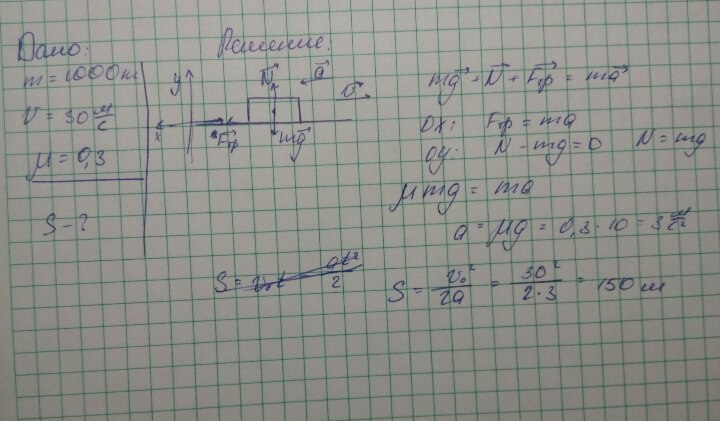 Дано:
m = 1000 кг
v = 30 м/с
μ = 0,3
S - ?
Решение:
y
N⃗
a⃗
v⃗
x
F⃗тр
mg⃗
mg⃗ + N⃗ + F⃗тр = ma⃗
OX: Fтр = ma
OY: N - mg = 0 N = mg
μmg = ma
a = μg = 0,3 · 10 = 3 м/с²
S = v₀t at²/2
S = v₀²/2a = 30²/2·3 = 150 м